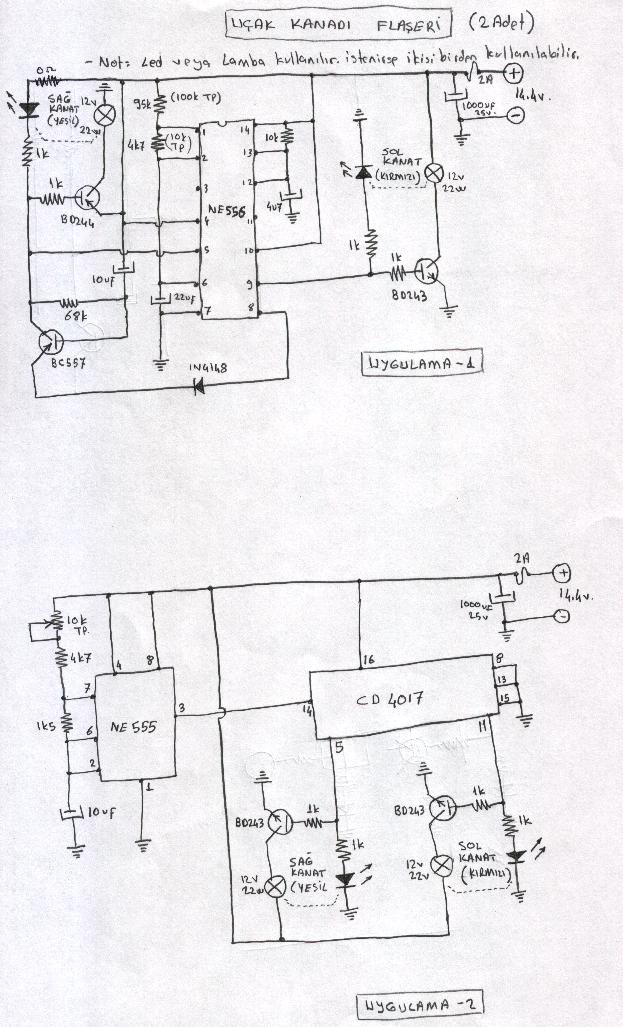 UÇAK KANADI FLAŞERİ (2 Adet)
- Not: Led veya Lamba kullanılır. istenirse ikisi birden kullanılabilir.
0Ω
2A
+
14.4v.
-
1000uF
25v.
SAĞ
KANAT
(YEŞİL)
12v
22w
95k
(100k TP)
4k7
(10k
TP)
1k
1k
BD244
1
2
3
4
5
6
7
14
13
12
11
10
9
8
NE556
10k
4u7
SOL
KANAT
(KIRMIZI)
12v
22w
1k
1k
BD243
10uF
22uF
68k
BC557
1N4148
UYGULAMA-1
2A
+
14.4v.
-
1000uF
25v
10k
TP.
4k7
1k5
10uF
4
8
7
6
2
3
1
NE 555
16
14
CD 4017
8
13
15
5
11
BD243
1k
1k
12v
22w
SAĞ
KANAT
(YEŞİL
BD243
1k
1k
12v
22v
SOL
KANAT
(KIRMIZI)
UYGULAMA-2